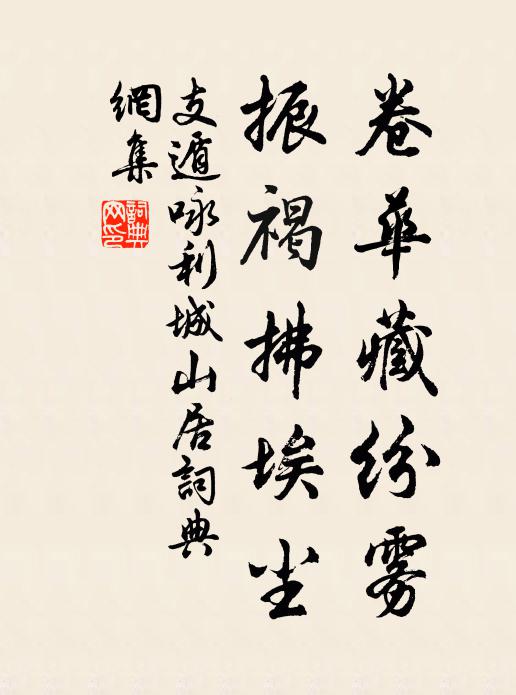 卷華藏纷雾
振褐拂埃尘
支遁咏利城山居詞典
網集
詞典网印